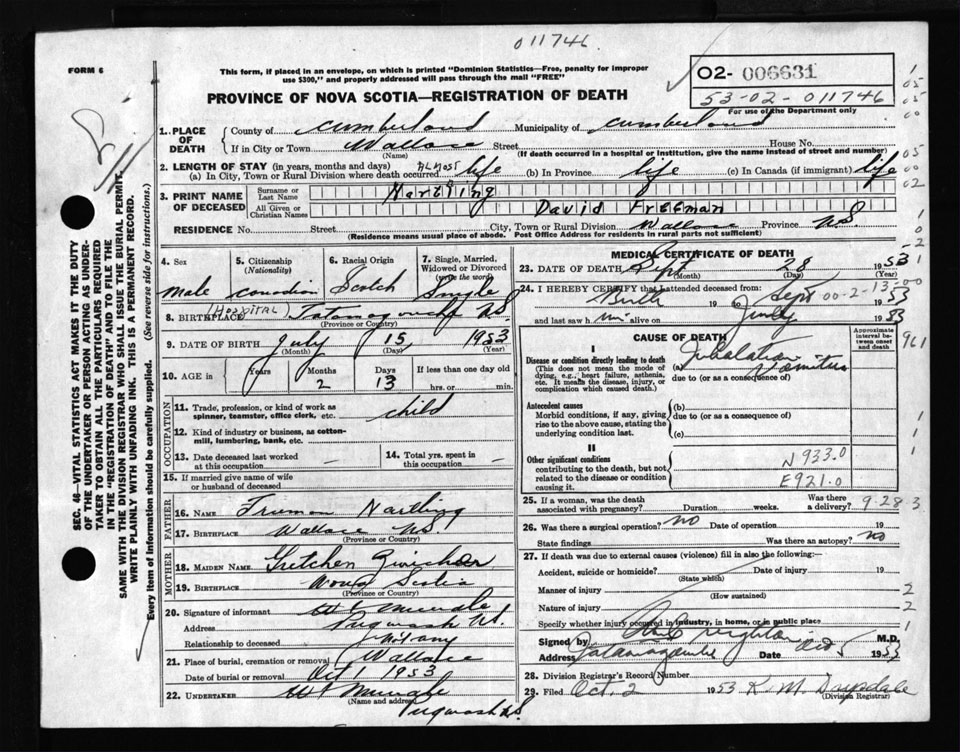 011746
FORM 6
This form, if placed in an envelope, on which is printed "Dominion Statistics—Free, penalty for improper
use $300," and properly addressed will pass through the mail "FREE"
02- 006631
53-02-011746
For use of the Department only
PROVINCE OF NOVA SCOTIA—REGISTRATION OF DEATH
1. PLACE OF DEATH
County of Cumberland Municipality of Cumberland
If in City or Town Wallace Street House No.
(Name) (If death occurred in a hospital or institution, give the name instead of street and number)
2. LENGTH OF STAY (in years, months and days)
(a) In City, Town or Rural Division where death occurred almost life (b) In Province life (c) In Canada (if immigrant) life
3. PRINT NAME OF DECEASED
Surname or Last Name Hartling
All Given or Christian Names David Freeman
RESIDENCE No. Street City, Town or Rural Division Wallace Province N.S.
(Residence means usual place of abode. Post Office Address for residents in rural parts not sufficient)
4. Sex
male
5. Citizenship
(Nationality)
Canadian
6. Racial Origin
Scotch
7. Single, Married, Widowed or Divorced
(write the word)
Single
(Hospital)
8. BIRTHPLACE Tatamagouche N.S.
(Province or Country)
9. DATE OF BIRTH July 15 1953
(Month) (Day) (Year)
10. AGE in
Years Months Days If less than one day old
2 13 hrs. or min.
OCCUPATION
11. Trade, profession, or kind of work as
spinner, teamster, office clerk, etc. child
12. Kind of industry or business, as cotton-
mill, lumbering, bank, etc.
13. Date deceased last worked
at this occupation
14. Total yrs. spent in
this occupation —
15. If married give name of wife
or husband of deceased
FATHER
16. NAME Truman Hartling
17. BIRTHPLACE Wallace N.S.
(Province or Country)
MOTHER
18. MAIDEN NAME Gretchen
19. BIRTHPLACE Nova Scotia
(Province or Country)
20. Signature of informant
Address Pugwash N.S.
Relationship to deceased
21. Place of burial, cremation or removal Wallace
Date of burial or removal Oct 1 1953
22. UNDERTAKER
(Name and address)
Pugwash N.S.
MEDICAL CERTIFICATE OF DEATH
23. DATE OF DEATH Sept 28 1953
(Month) (Day) (Year)
24. I HEREBY CERTIFY that I attended deceased from:
Birth 19 to Sept 1953
00-2-13-00
and last saw him alive on July 1953
CAUSE OF DEATH
Approximate interval between onset and death
I
Disease or condition directly leading to death
(This does not mean the mode of
dying, e.g., heart failure, asthenia,
etc. It means the disease, injury, or
complication which caused death.)
(a) Inhalation Vomitus
due to (or as a consequence of)
Antecedent causes
Morbid conditions, if any, giving
rise to the above cause, stating the
underlying condition last.
(b)
due to (or as a consequence of)
(c)
II
Other significant conditions
contributing to the death, but not
related to the disease or condition
causing it.
N 933.0
E921.0
25. If a woman, was the death
associated with pregnancy? Duration weeks. Was there a delivery?
9-28-3
26. Was there a surgical operation? no Date of operation 19
State findings Was there an autopsy? no
27. If death was due to external causes (violence) fill in also the following:—
Accident, suicide or homicide? Date of injury 19
(State which)
Manner of injury
(How sustained)
Nature of injury
Specify whether injury occurred in industry, in home, or in public place
Signed by M.D.
Address Tatamagouche Date Oct 5 1953
28. Division Registrar's Record Number
29. Filed Oct. 2 1953 K. M. Drysdale
(Division Registrar)
SEC. 46—VITAL STATISTICS ACT MAKES IT THE DUTY
OF THE UNDERTAKER OR PERSON ACTING AS UNDER-
TAKER TO OBTAIN ALL THE PARTICULARS REQUIRED
IN THE "REGISTRATION OF DEATH" AND TO FILE THE
SAME WITH THE DIVISION REGISTRAR WHO SHALL ISSUE THE BURIAL PERMIT.
WRITE PLAINLY WITH UNFADING INK. THIS IS A PERMANENT RECORD.
Every item of information should be carefully supplied. (See reverse side for instructions.)